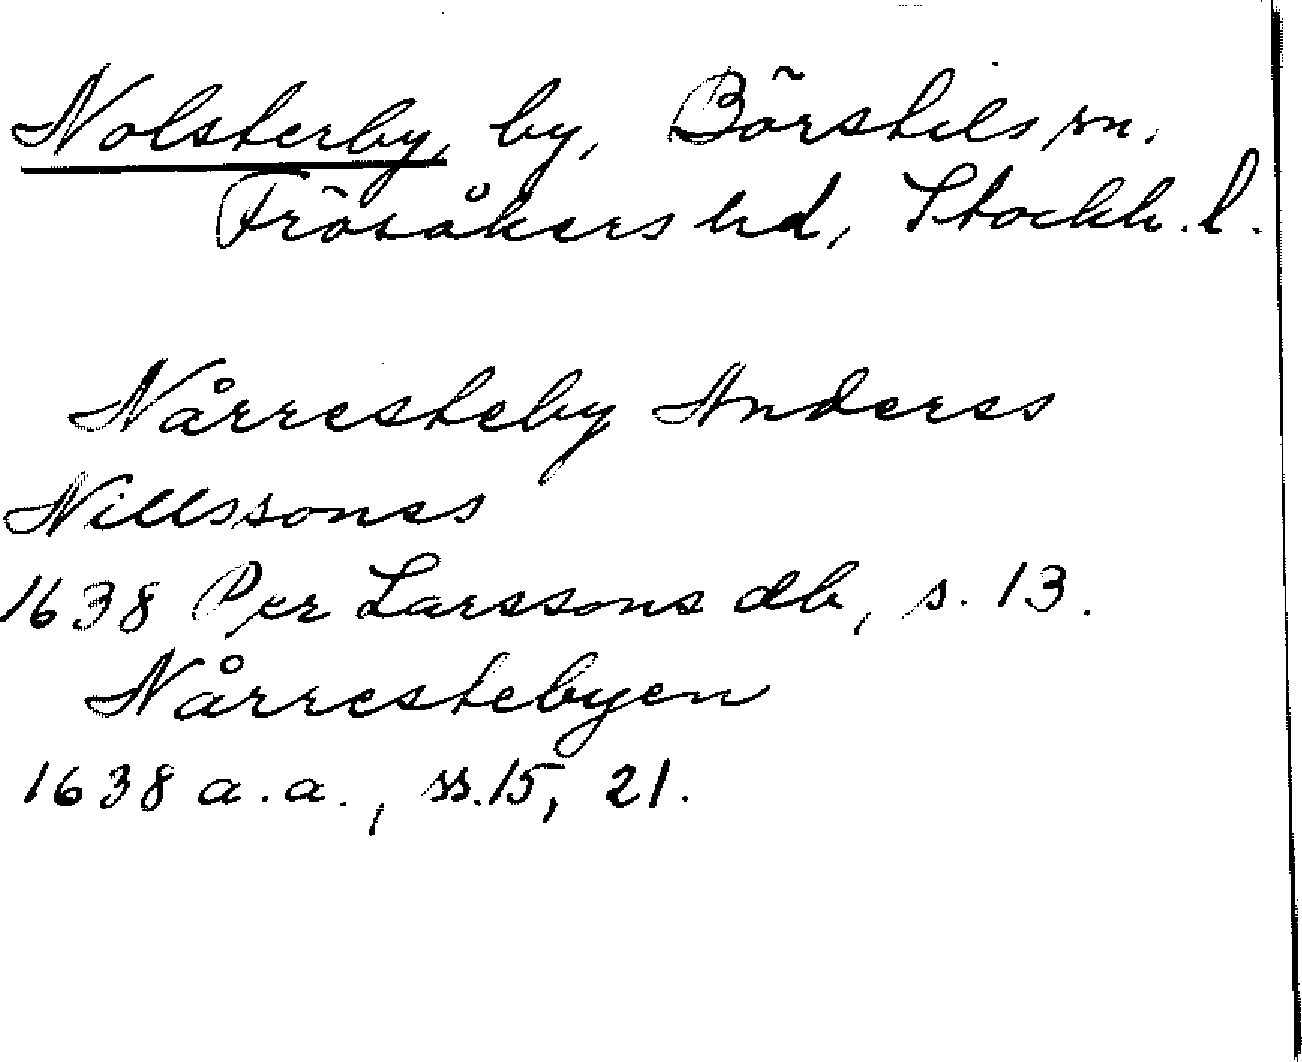 Nolsterby, by, Börstils sn.
Frösåkers hd, Stockh. l.
Nårresteby Anderss
Nillssones
1638 Per Larssons db, s. 13.
Nårrestebyen
1638 a.a., ss. 15, 21.